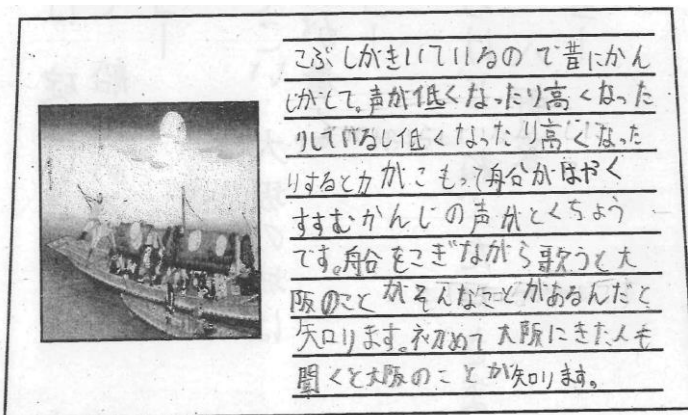 こぶしがきいているので昔にかん
じがして。声が低くなったり高くなった
りしているし低くなったり高くなった
りすると力がこもって船がはやく
すすむかんじの声がとくちょう
です。船をこぎながら歌うと大
阪のことがそんなことがあるんだと
知ります。初めて大阪にきた人も
聞くと大阪のことが知ります。